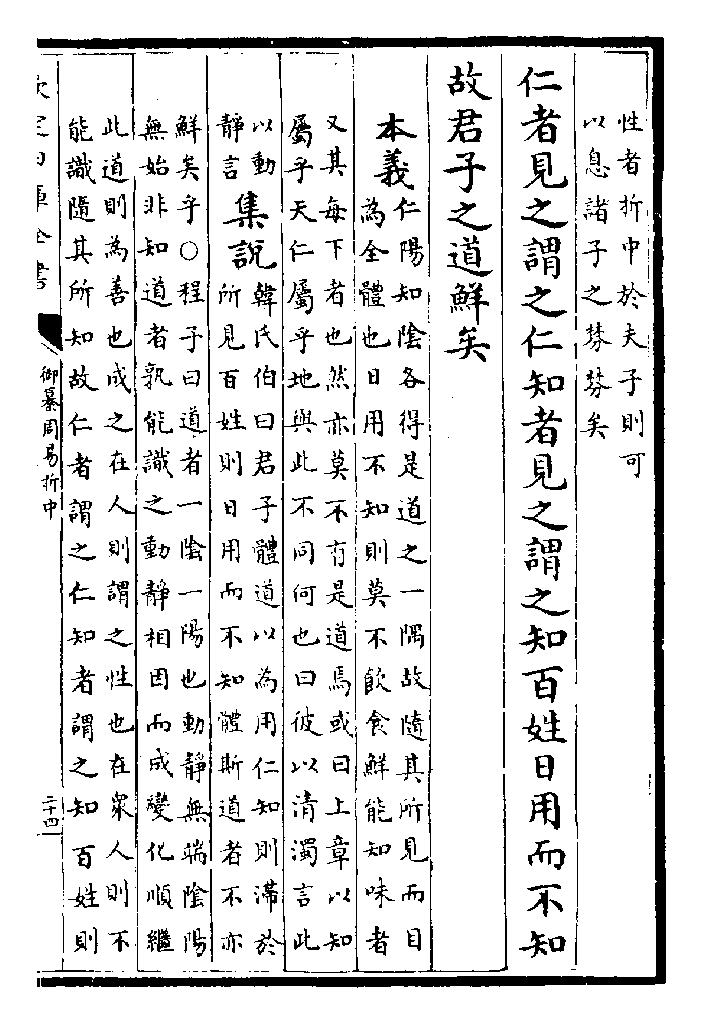 性者折中於夫子則可
以息諸子之棼棼矣
仁者見之謂之仁知者見之謂之知百姓日用而不知
故君子之道鮮矣
本義
仁陽知陰各得是道之一隅故隨其所見而目
為全體也日用不知則莫不飲食鮮能知味者
又其每下者也然亦莫不有是道焉或曰上章以知
屬乎天仁屬乎地與此不同何也曰彼以清濁言此
以動
靜言
集說
韓氏伯曰君子體道以為用仁知則滯於
所見百姓則日用而不知體斯道者不亦
鮮矣乎○程子曰道者一陰一陽也動靜無端陰陽
無始非知道者孰能識之動靜相因而成變化順繼
此道則為善也成之在人則謂之性也在衆人則不
能識隨其所知故仁者謂之仁知者謂之知百姓則
欽定四庫全書
御纂周易折中
二十四